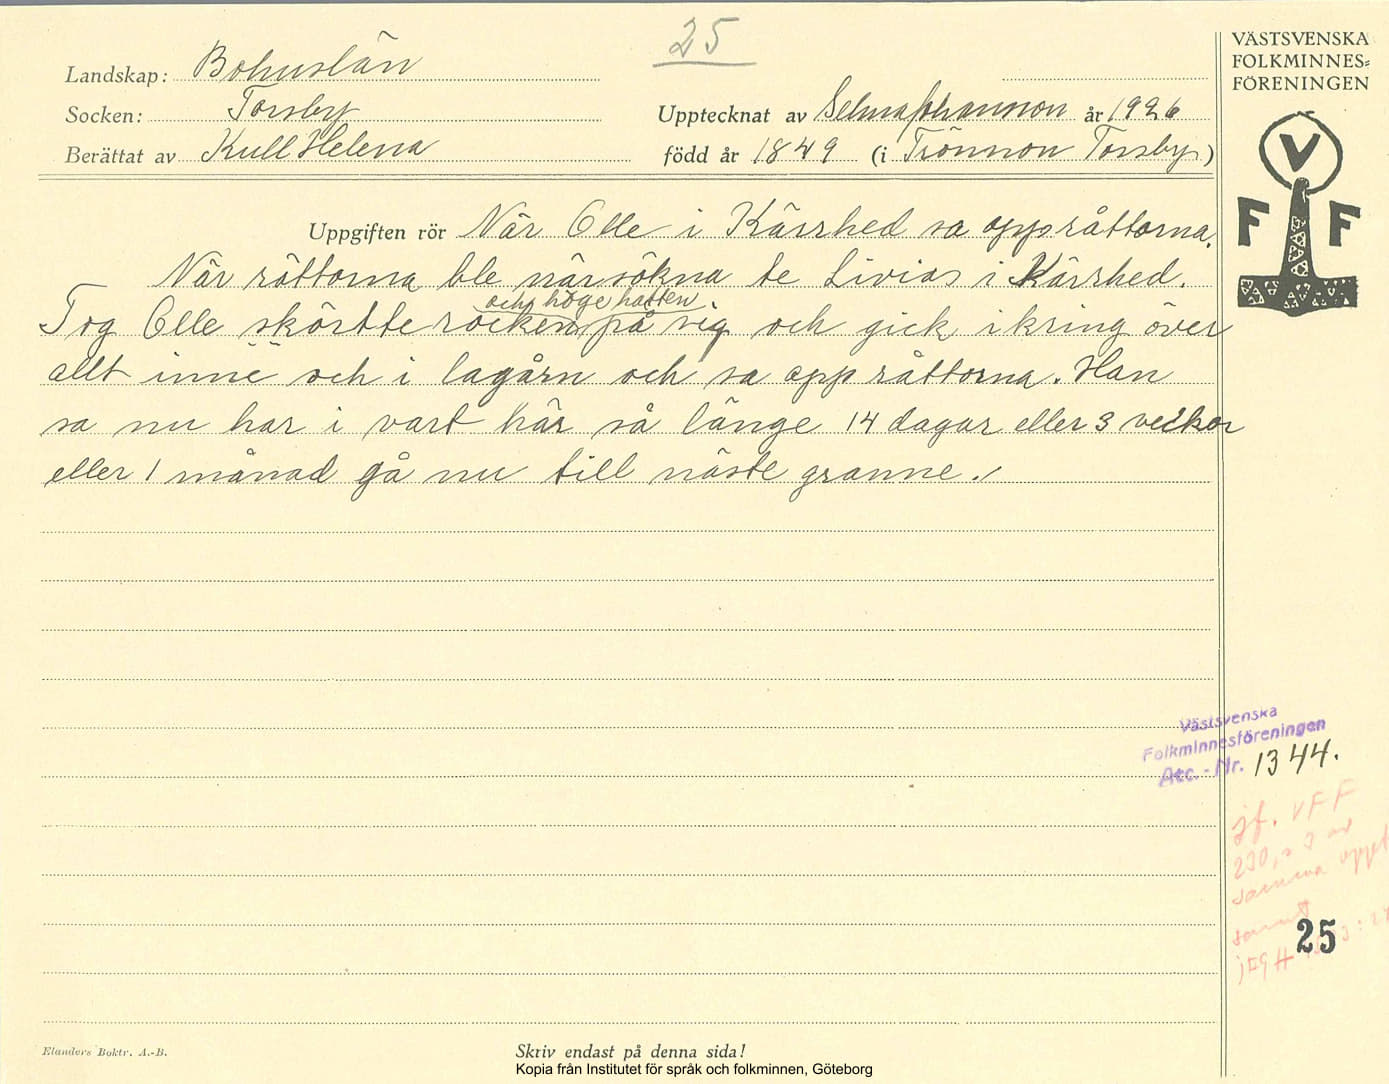 25
VÄSTSVENSKA
FOLKMINNES=
FÖRENINGEN
V
F F
Landskap: Bohuslän
Socken: Torsby Upptecknat av Selma Johansson år 1926
Berättat av Kull Helena född år 1849 (i Trönnon Torsby)
Uppgiften rör När Olle i Kärrhed sa opp råttorna.
När råttorna ble närsökna te Livias i Kärrhed.
och höge hatten
Tog Olle skörtte rocken på sig och gick ikring över
allt inne och i lagårn och sa opp råttorna. Han
sa nu har i vart här så länge 14 dagar eller 3 veckor
eller 1 månad gå nu till näste granne.
Västsvenska
Folkminnesföreningen
Acc.-Nr. 1344.
jf. VFF
230, s 3 av
samma
25
Elanders Boktr. A.-B.
Skriv endast på denna sida!
Kopia från Institutet för språk och folkminnen, Göteborg